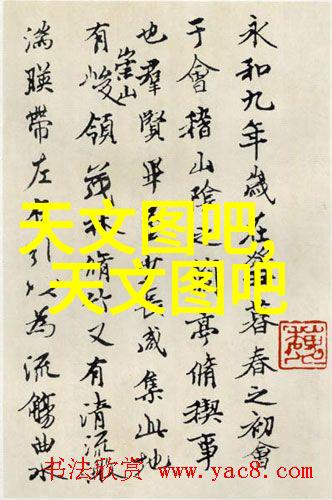 永和九年歲在暮春之初會
于會稽山陰之亭脩稧事
也羣賢畢少長咸集此地
有崇山峻領茂林脩竹又有清流激
湍暎帶左右引以為流觴曲水
天文图吧,
天文图吧
书法欣赏 www.yac8.com